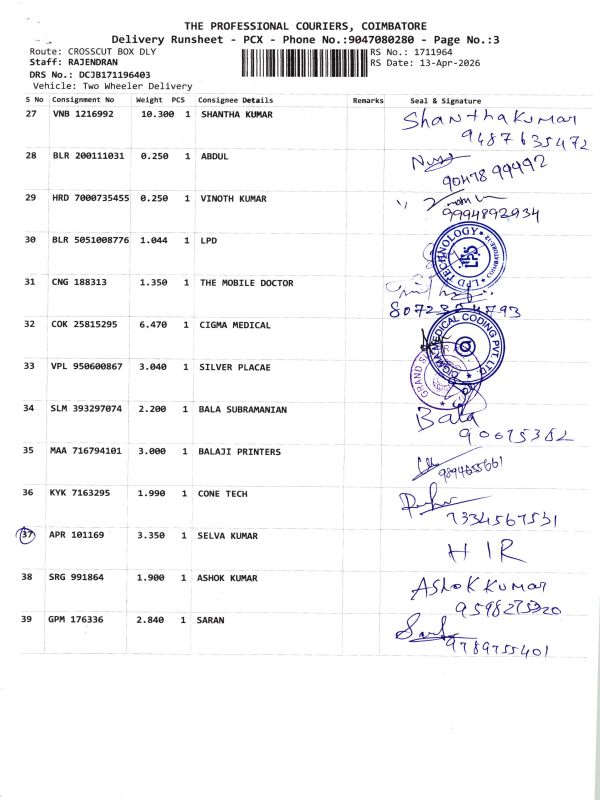 THE PROFESSIONAL COURIERS, COIMBATORE
Delivery Runsheet - PCX - Phone No.:9047080280 - Page No.:3
Route: CROSSCUT BOX DLY
RS No.: 1711964
Staff: RAJENDRAN
RS Date: 13-Apr-2026
DRS No.: DCJB171196403
Vehicle: Two Wheeler Delivery
S No Consignment No Weight PCS Consignee Details Remarks Seal & Signature
27 VNB 1216992 10.300 1 SHANTHA KUMAR Shantha Kumar
9487635472
28 BLR 200111031 0.250 1 ABDUL
9047899492
29 HRD 7000735455 0.250 1 VINOTH KUMAR
9994892934
30 BLR 5051008776 1.044 1 LPD LPD TECHNOLOGY LPD
31 CNG 188313 1.350 1 THE MOBILE DOCTOR
32 COK 25815295 6.470 1 CIGMA MEDICAL CIGMA MEDICAL CODING PVT LTD
33 VPL 950600867 3.040 1 SILVER PLACAE GRAND
34 SLM 393297074 2.200 1 BALA SUBRAMANIAN Bala
35 MAA 716794101 3.000 1 BALAJI PRINTERS
9894655661
36 KYK 7163295 1.990 1 CONE TECH
7334567531
37 APR 101169 3.350 1 SELVA KUMAR HIR
38 SRG 991864 1.900 1 ASHOK KUMAR AShoK KUMAR
9598275920
39 GPM 176336 2.840 1 SARAN
9789755401